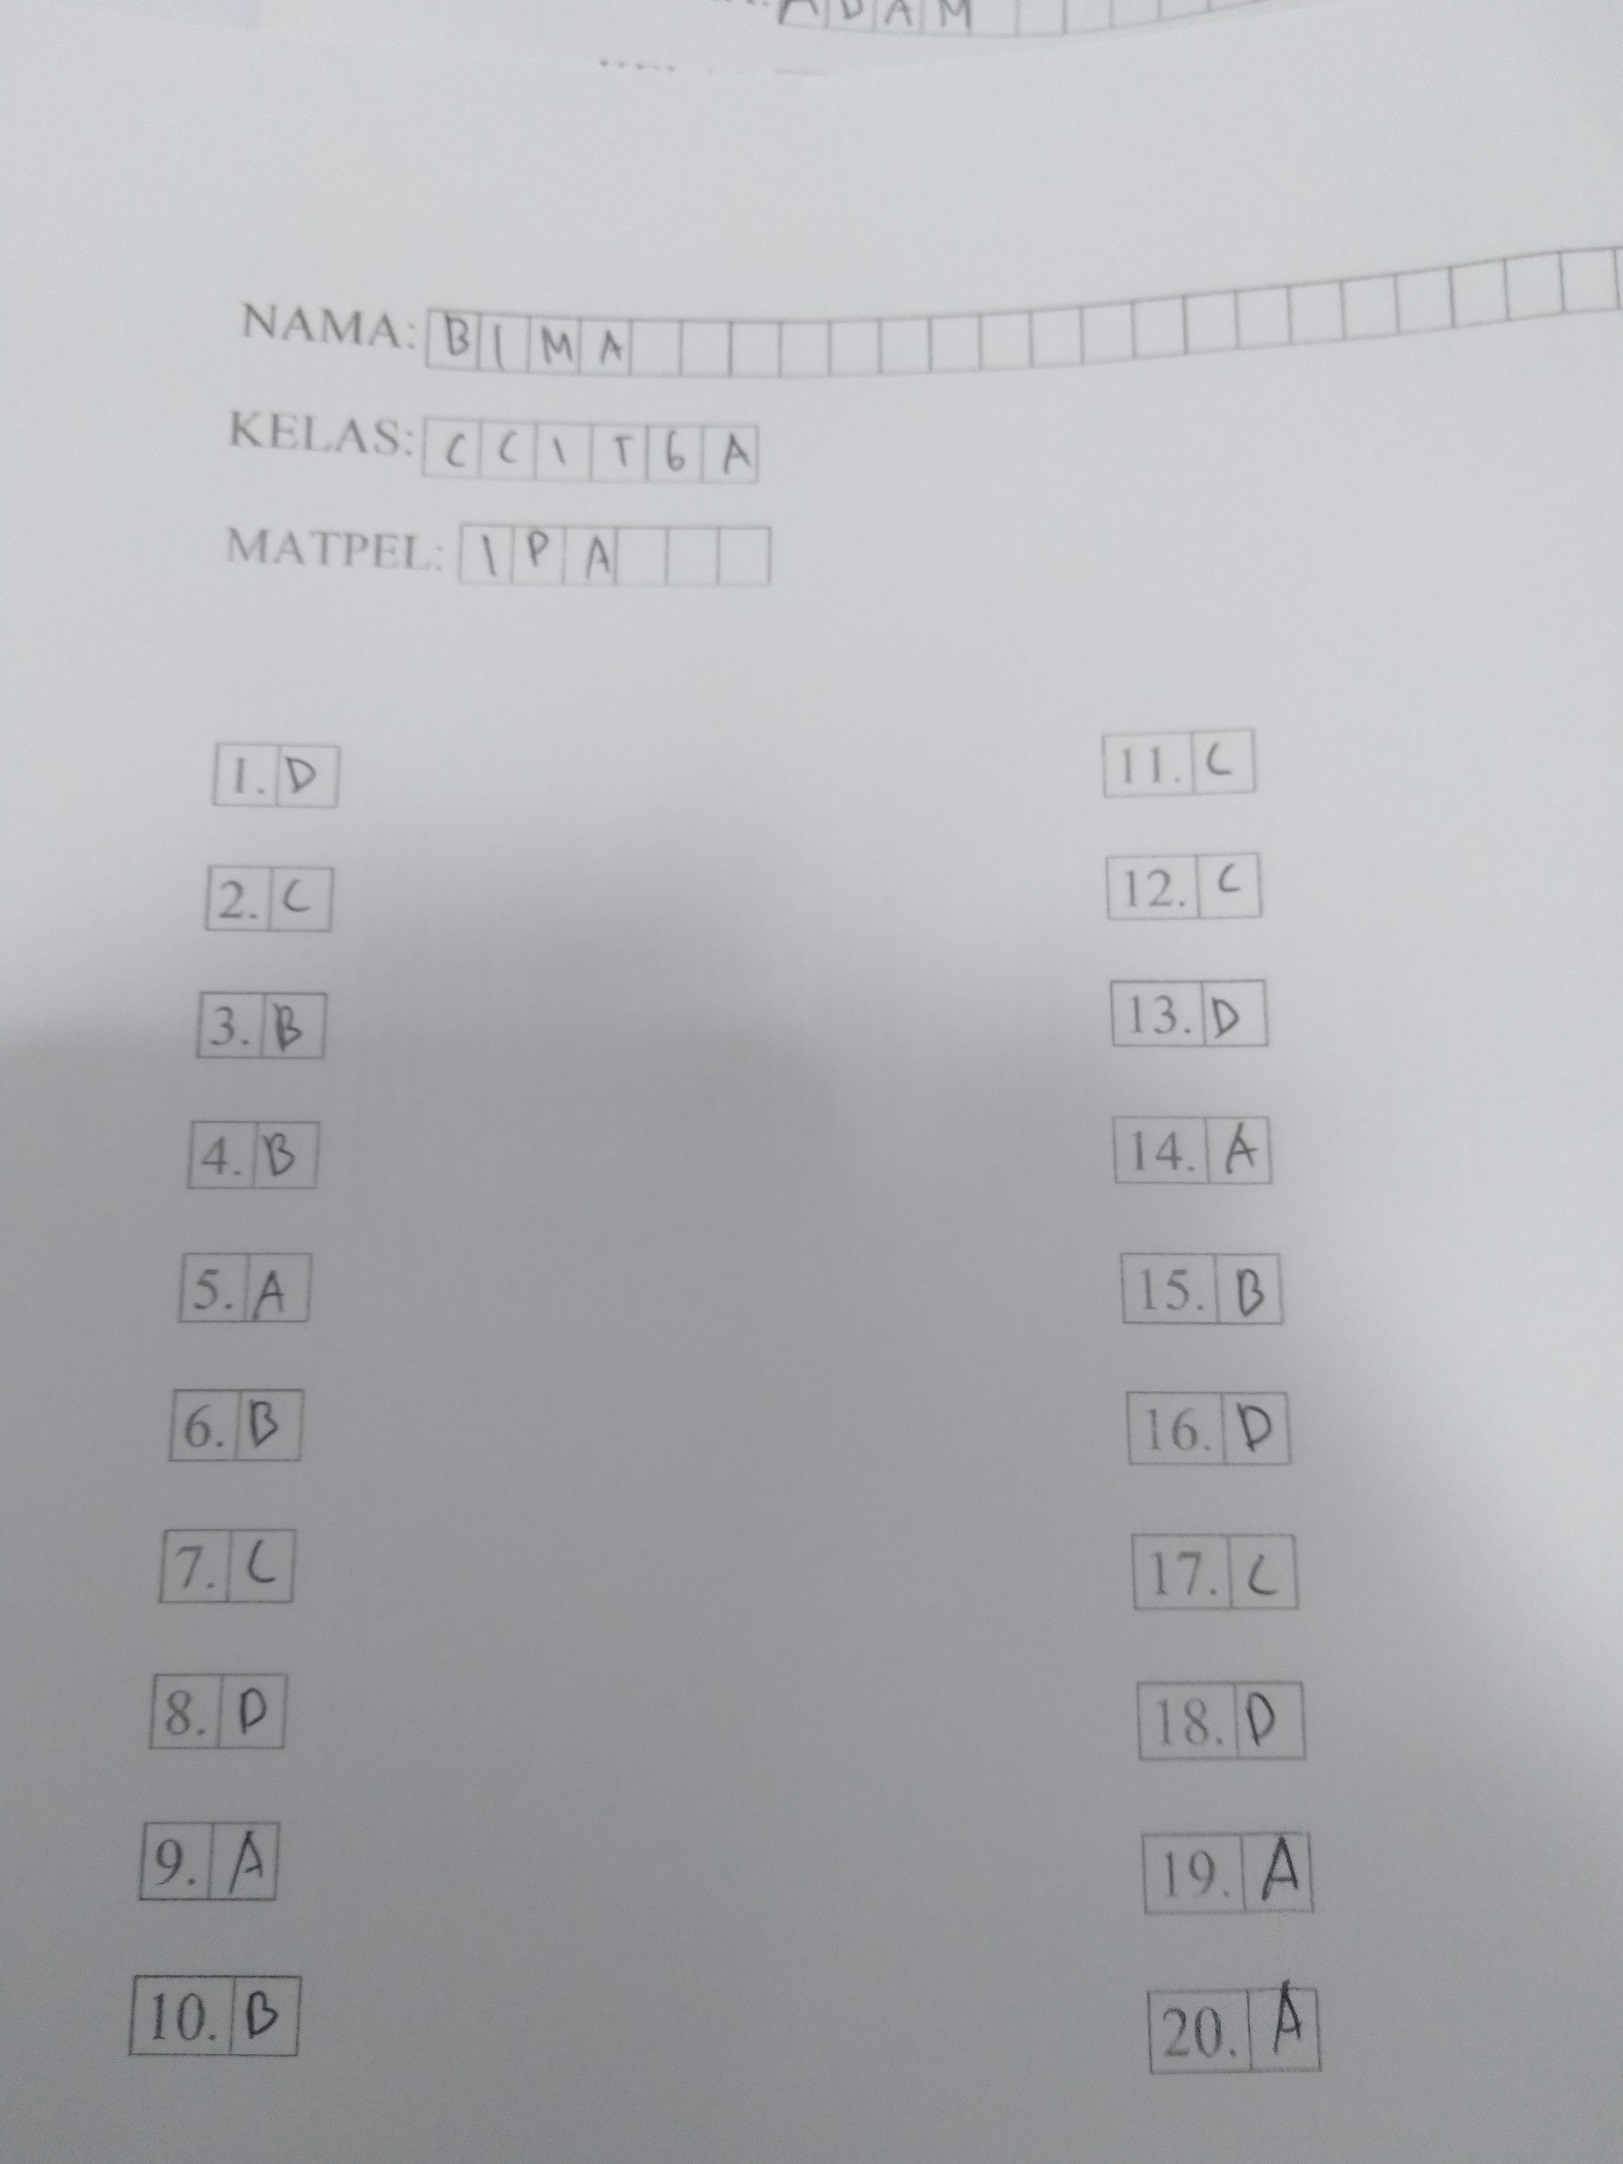 ADAM
NAMA: BIMA
KELAS: CCIT6A
MATPEL: IPA
1. D
2. C
3. B
4. B
5. A
6. B
7. C
8. D
9. A
10. B
11. C
12. C
13. D
14. A
15. B
16. D
17. C
18. D
19. A
20. A